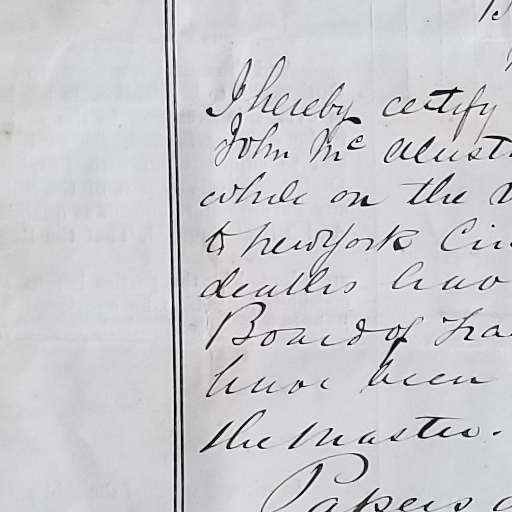 I hereby certify
John Mc
while on the
to New York
deaths have
Board of Tra
have been
the Master.
Papers